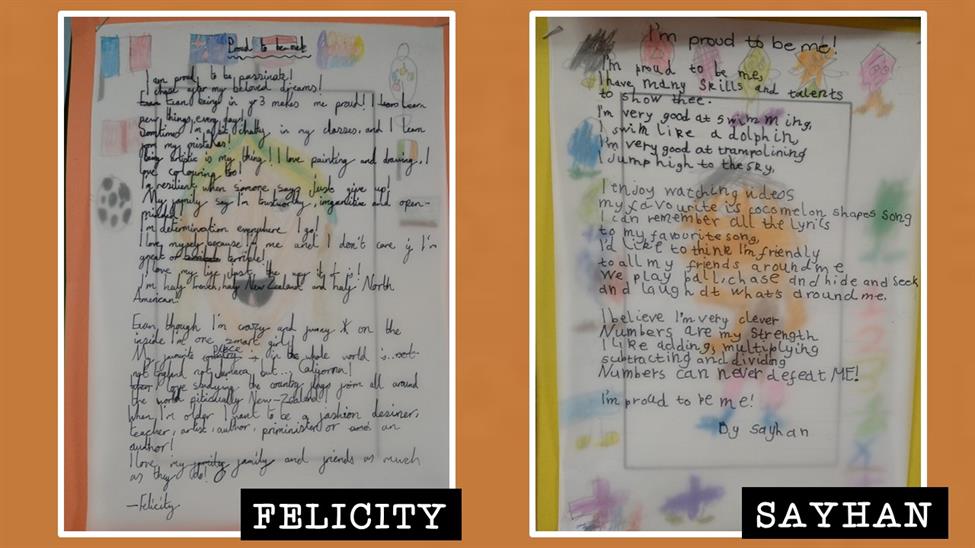 Proud to be me!
I am proud to be passinate!
I chase after my beloved dreams!
being in yr3 makes me proud! I learn
new things every day!
Sometimes I'm a bit chatty in my classes, and I learn
from my mistakes!
Being artistic is my thing! I love painting and drawing, I
love colouring too!
I'm resilient when somone says Just give up!
My family say I'm trustworthy, imganitive and open-
minded!
I'm determination everywhere I go!
I love myself because I'm me and I don't care if I'm
great or terrible!
I love my life just the way it is!
I'm half French, half New Zealand and half North
American!
Even though I'm crazy and funny * on the
inside I'm one smart girl!
My favourite place in the whole world is..
not England not but... California!
I love studying the country flags from all around
the world pitically New-Zealand!
When I'm older I want to be a fashion desiner,
teacher, artist, author, priminister or an
author!
I love my family and friends as much
as they do!
—Felicity
FELICITY
I'm proud to be me!
I'm proud to be me,
I have many skills and talents
to show thee.
I'm very good at swimming,
I swim like a dolphin,
I'm very good at trampolining
I jump high to the sky,
I enjoy watching videos
my favourite is cocomelon shapes song
I can remember all the lyrics
to my favourite song,
I'd like to think I'm friendly
to all my friends around me
We play ball, chase and hide and seek
and laugh at whats around me.
I believe I'm very clever
Numbers are my strength
I like adding, multiplying
subtracting and dividing
Numbers can never defeat ME!
I'm proud to be me!
By Sayhan
SAYHAN